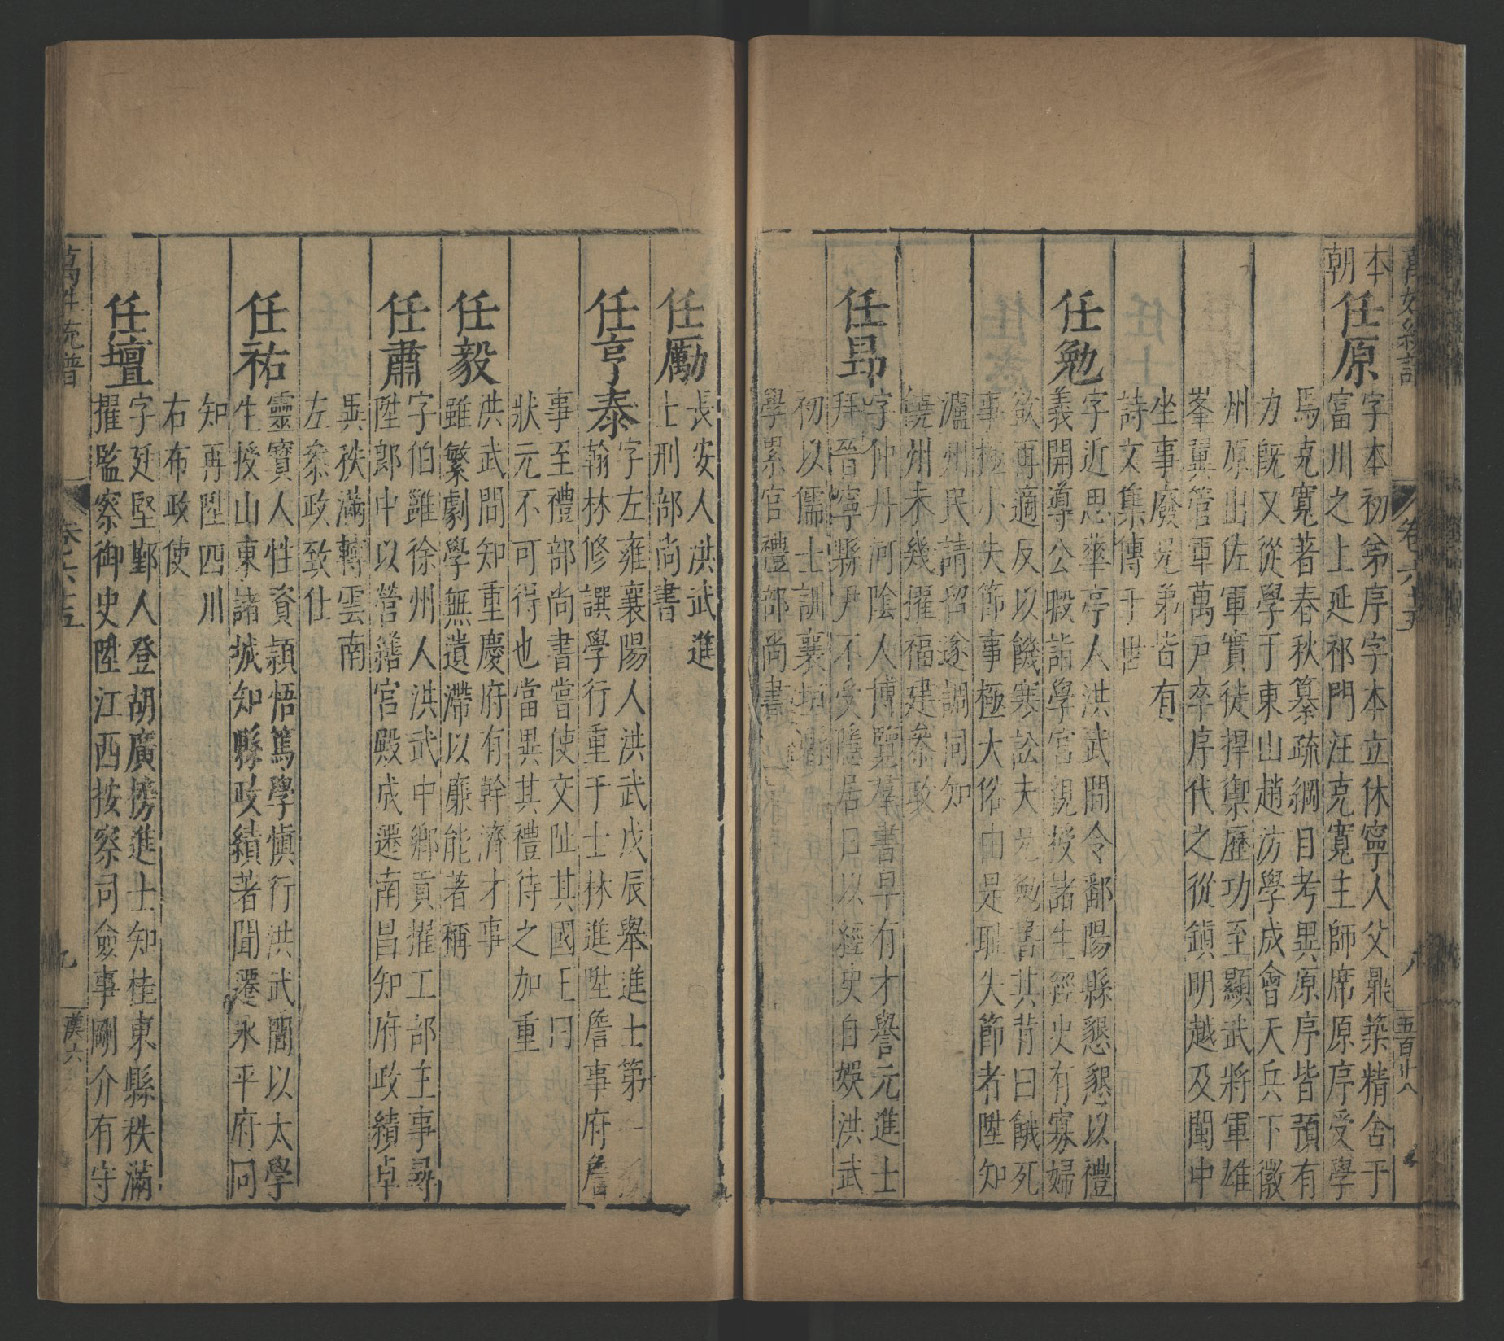 萬姓統譜
卷六十五
八
本朝
任原
字本初弟序字本立休寧人父鼎築精舍于
富川之上延祁門汪克寬主師席原序受學
焉克寬著春秋纂疏綱目考異原序皆預有
力既又從學于東山趙汸學成會天兵下徽
州原出佐軍實徒捍禦歷功至顯武將軍雄
峯翼管軍萬戶卒序代之從鎮明越及閩中
坐事廢兄弟皆有
詩文集傳于世
任勉
字近思華亭人洪武間令鄱陽縣懇懇以禮
義開導公暇詣學宮親授諸生經史有寡婦
欲再適反以饑寒訟夫兄勉書其背曰餓死
事極小失節事極大俗由是耻失節者陞知
瀘州民請留遂調同知
饒州未幾擢福建叅政
任昂
字仲丹河陰人博覽羣書早有才譽元進士
拜晉寧縣尹不受隱居日以經史自娛洪武
初以儒士訓襄垣
學累官禮部尚書
任勵
長安人洪武進
士刑部尚書
任亨泰
字左雍襄陽人洪武戊辰舉進士第一
翰林修譔學行重于士林進陞詹事府詹
事至禮部尚書嘗使交阯其國王曰
狀元不可得也當異其禮待之加重
任毅
洪武間知重慶府有幹濟才事
雖繁劇學無遺滯以廉能著稱
任肅
字伯雝徐州人洪武中鄉貢擢工部主事尋
陞郎中以營繕宮殿成遷南昌知府政績卓
異秩滿轉雲南
左叅政致仕
任祐
靈寶人性資穎悟篤學慎行洪武間以太學
生授山東諸城知縣政績著聞遷永平府同
知再陞四川
右布政使
任壇
字廷堅鄞人登胡廣榜進士知桂東縣秩滿
擢監察御史陞江西按察司僉事剛介有守
萬姓統譜
卷六十五
九